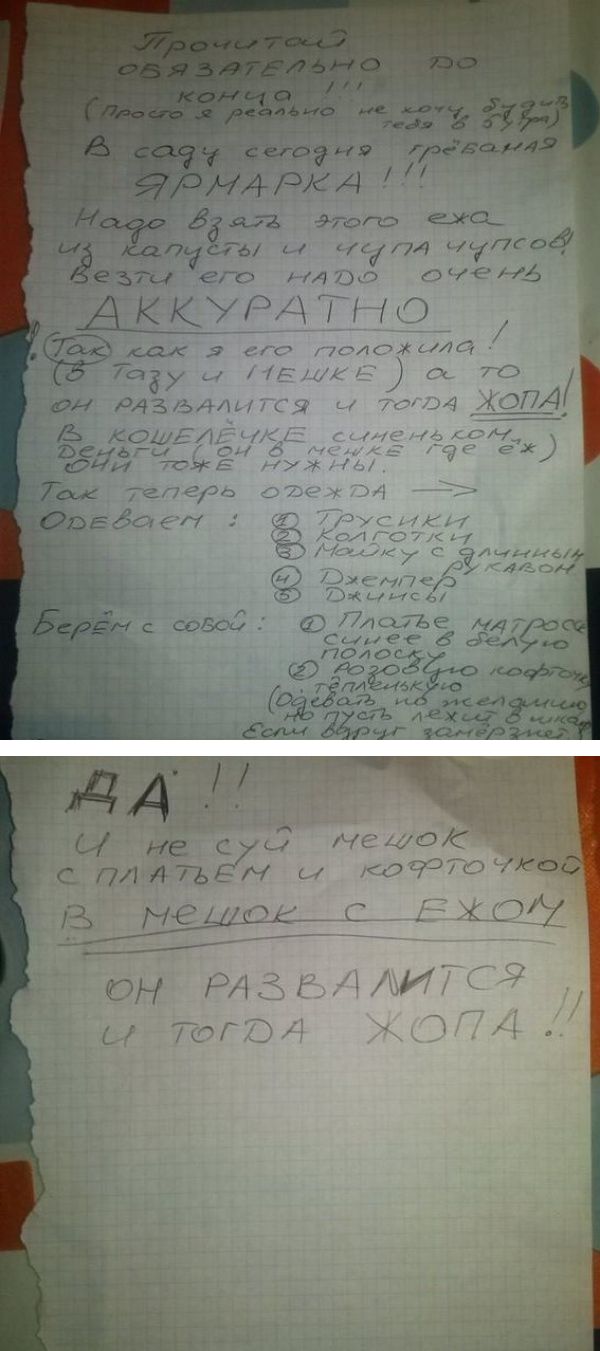 Прочитай
ОБЯЗАТЕЛЬНО ДО
КОНЦА !!!
(Просто я реально не хочу будить
тебя в 5 утра)
В саду сегодня грёбаная
ЯРМАРКА!!!
Надо взять этого ежа
из капусты и чупа чупсов!
Везти его НАДО ОЧЕНЬ
АККУРАТНО
! Так как я его положила!
(В Тазу и МЕШКЕ) а то
ОН РАЗВАЛИТСЯ И ТОГДА ЖОПА!
В КОШЕЛЁЧКЕ синеньком
Деньги (он в мешке где ёж)
ОНИ ТОЖЕ НУЖНЫ.
Так теперь одежда →
Одеваем: ① Трусики
② Колготки
③ Майку с длинным
рукавом
④ Джемпер
⑤ Джинсы
Берём с собой: ① Платье матроск
синее в белую
полоску
② Розовую кофточку
тёпленькую
(Одевать по желанию
но пусть лежит в шкаф
Если вдруг замёрзнет
ДА!!
И не суй мешок
С ПЛАТЬЕМ И КОФТОЧКОЙ
В МЕШОК С ЕЖОМ
ОН РАЗВАЛИТСЯ
И ТОГДА ЖОПА!!